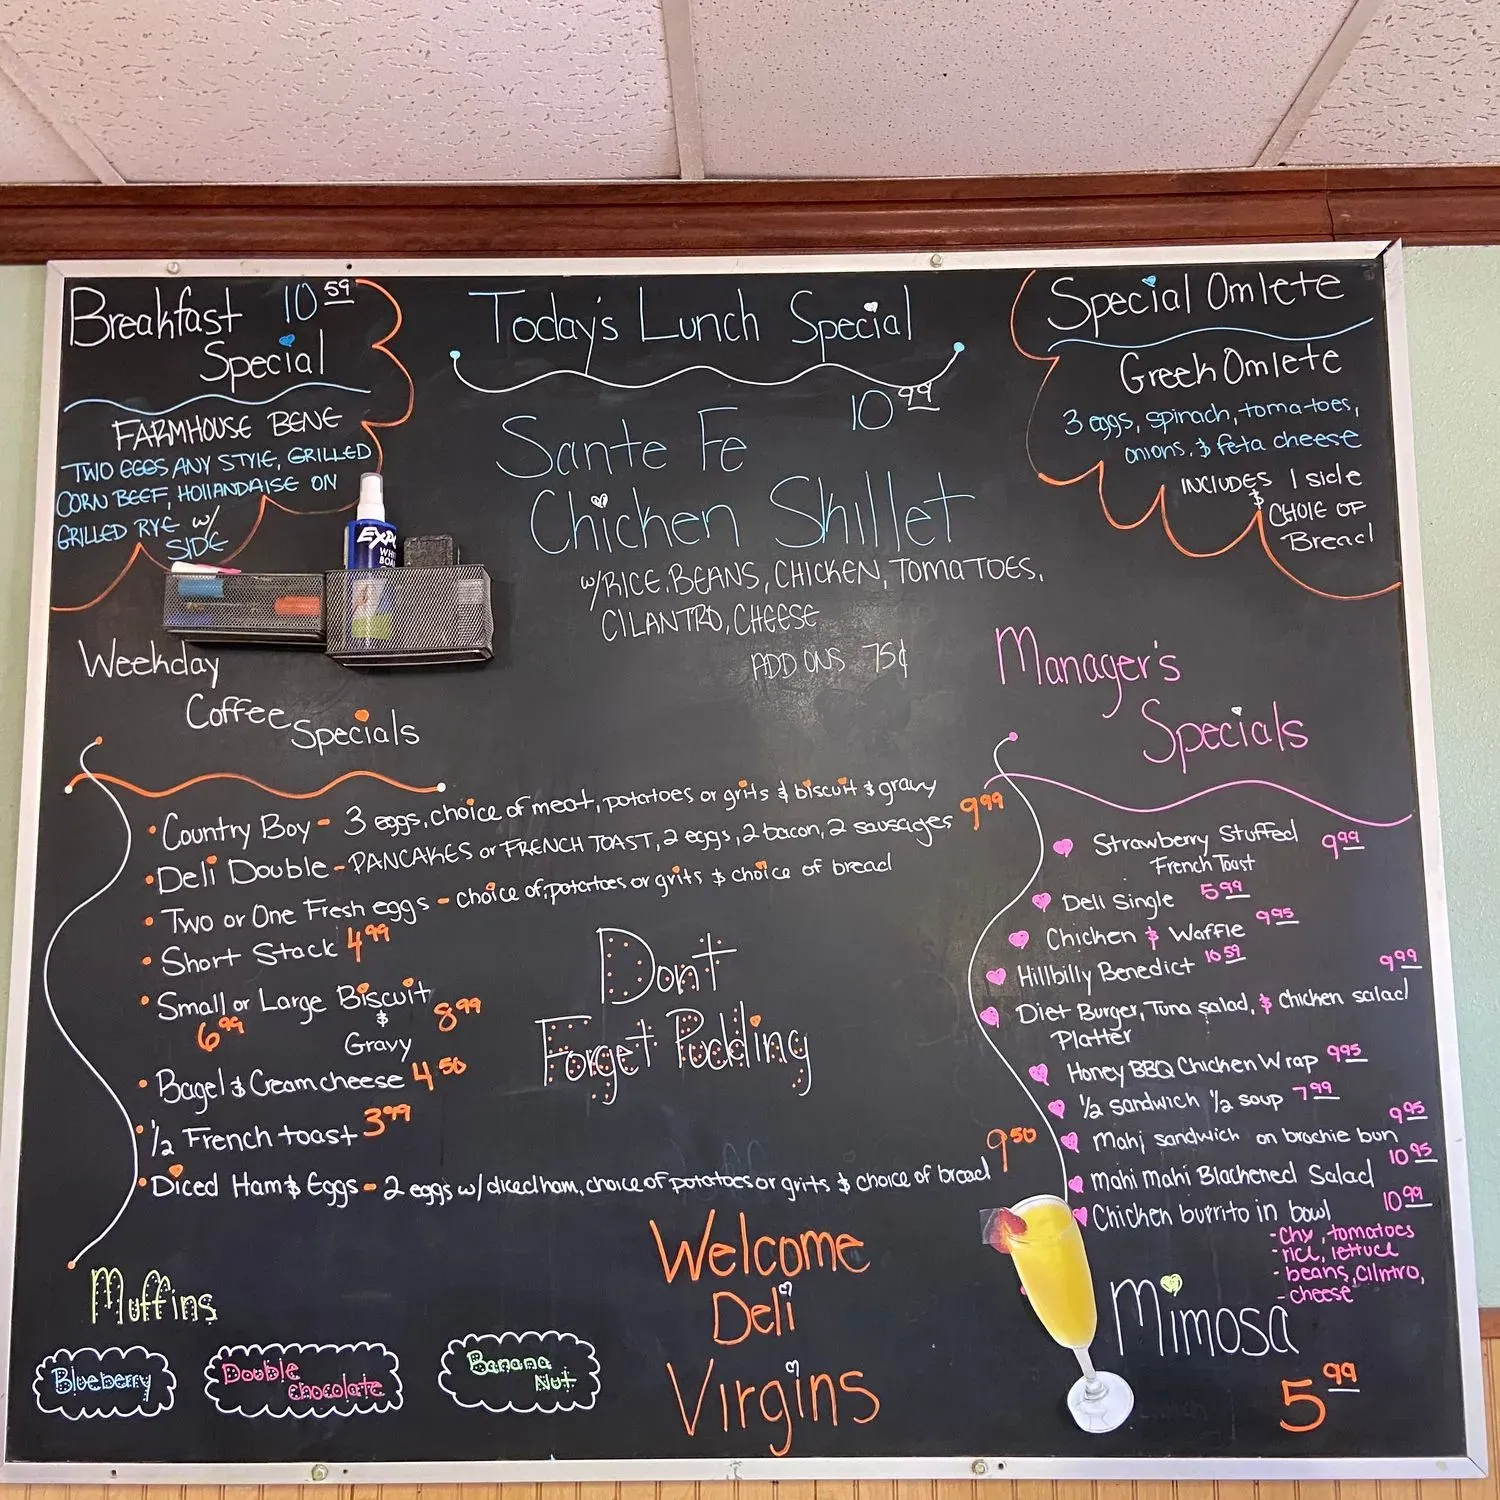 Breakfast 10 59
Special
FARMHOUSE BENE
TWO EGGS ANY STYlE, GRILLED
CORN BEEF, HOllANDAISE ON
GRILLED RYE w/
SIDE
EXPO
Today's Lunch Special
Sante Fe 10 99
Chicken Skillet
w/RICE, BEANS, CHICKEN, TOMATOES,
CILANTRO, CHEESE
ADD ONS 75¢
Special Omlete
Greek Omlete
3 eggs, spinach, tomatoes,
onions, & feta cheese
INCLUDES 1 side
&
CHOIE OF
Bread
Weekday
Coffee Specials
• Country Boy - 3 eggs, choice of meat, potatoes or grits & biscuit & gravy 9 99
• Deli Double - PANCAKES or FRENCH TOAST, 2 eggs, 2 bacon, 2 sausages
• Two or One Fresh eggs - choice of potatoes or grits & choice of bread
• Short Stack 4 99
• Small or Large Biscuit
6 99 & 8 99
Gravy
• Bagel & Creamcheese 4 50
• 1/2 French toast 3 99
• Diced Ham & Eggs - 2 eggs w/ diced ham, choice of potatoes or grits & choice of bread 9 50
Don't
Forget Pudding
Manager's
Specials
Strawberry Stuffed 9 99
French Toast
Deli Single 5 99
Chicken & Waffle 9 95
Hillbilly Benedict 10 59
Diet Burger, Tuna salad, & Chicken salad 9 99
Platter
Honey BBQ Chicken Wrap 9 95
1/2 sandwich 1/2 soup 7 99
Mahi sandwich on brochie bun 9 95
Mahi Mahi Blackened Salad 10 95
Chicken burrito in bowl 10 99
- chy, tomatoes
- rice, lettuce
- beans, cilntro,
- cheese
Muffins
Blueberry
Double
chocolate
Banana
Nut
Welcome
Deli
Virgins
Mimosa
5 99